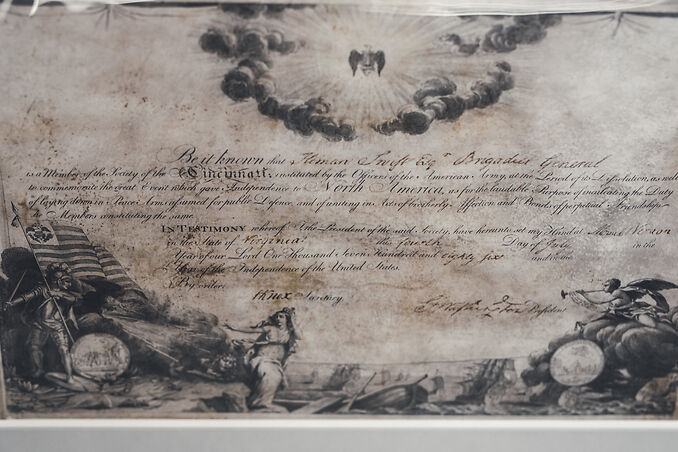 Be it known that Heman Swift Esqr. Brigadier General
is a Member of the Society of the Cincinnati; instituted by the Officers of the American Army, at the Period of its Dissolution, as well
to commemorate the great Event which gave Independence to North America, as for the laudable Purpose of inculcating the Duty
of laying down in Peace Arms assumed for public Defence, and of uniting in Acts of brotherly Affection and Bonds of perpetual Friendship
the Members constituting the same.
IN TESTIMONY whereof I, the President of the said Society, have hereunto set my Hand at Mount Vernon
in the State of Virginia this fourth Day of July in the
Year of our Lord One Thousand Seven Hundred and eighty six and in the
Year of the Independence of the United States.
By order,
HKnox Secretary.
G. Washington President